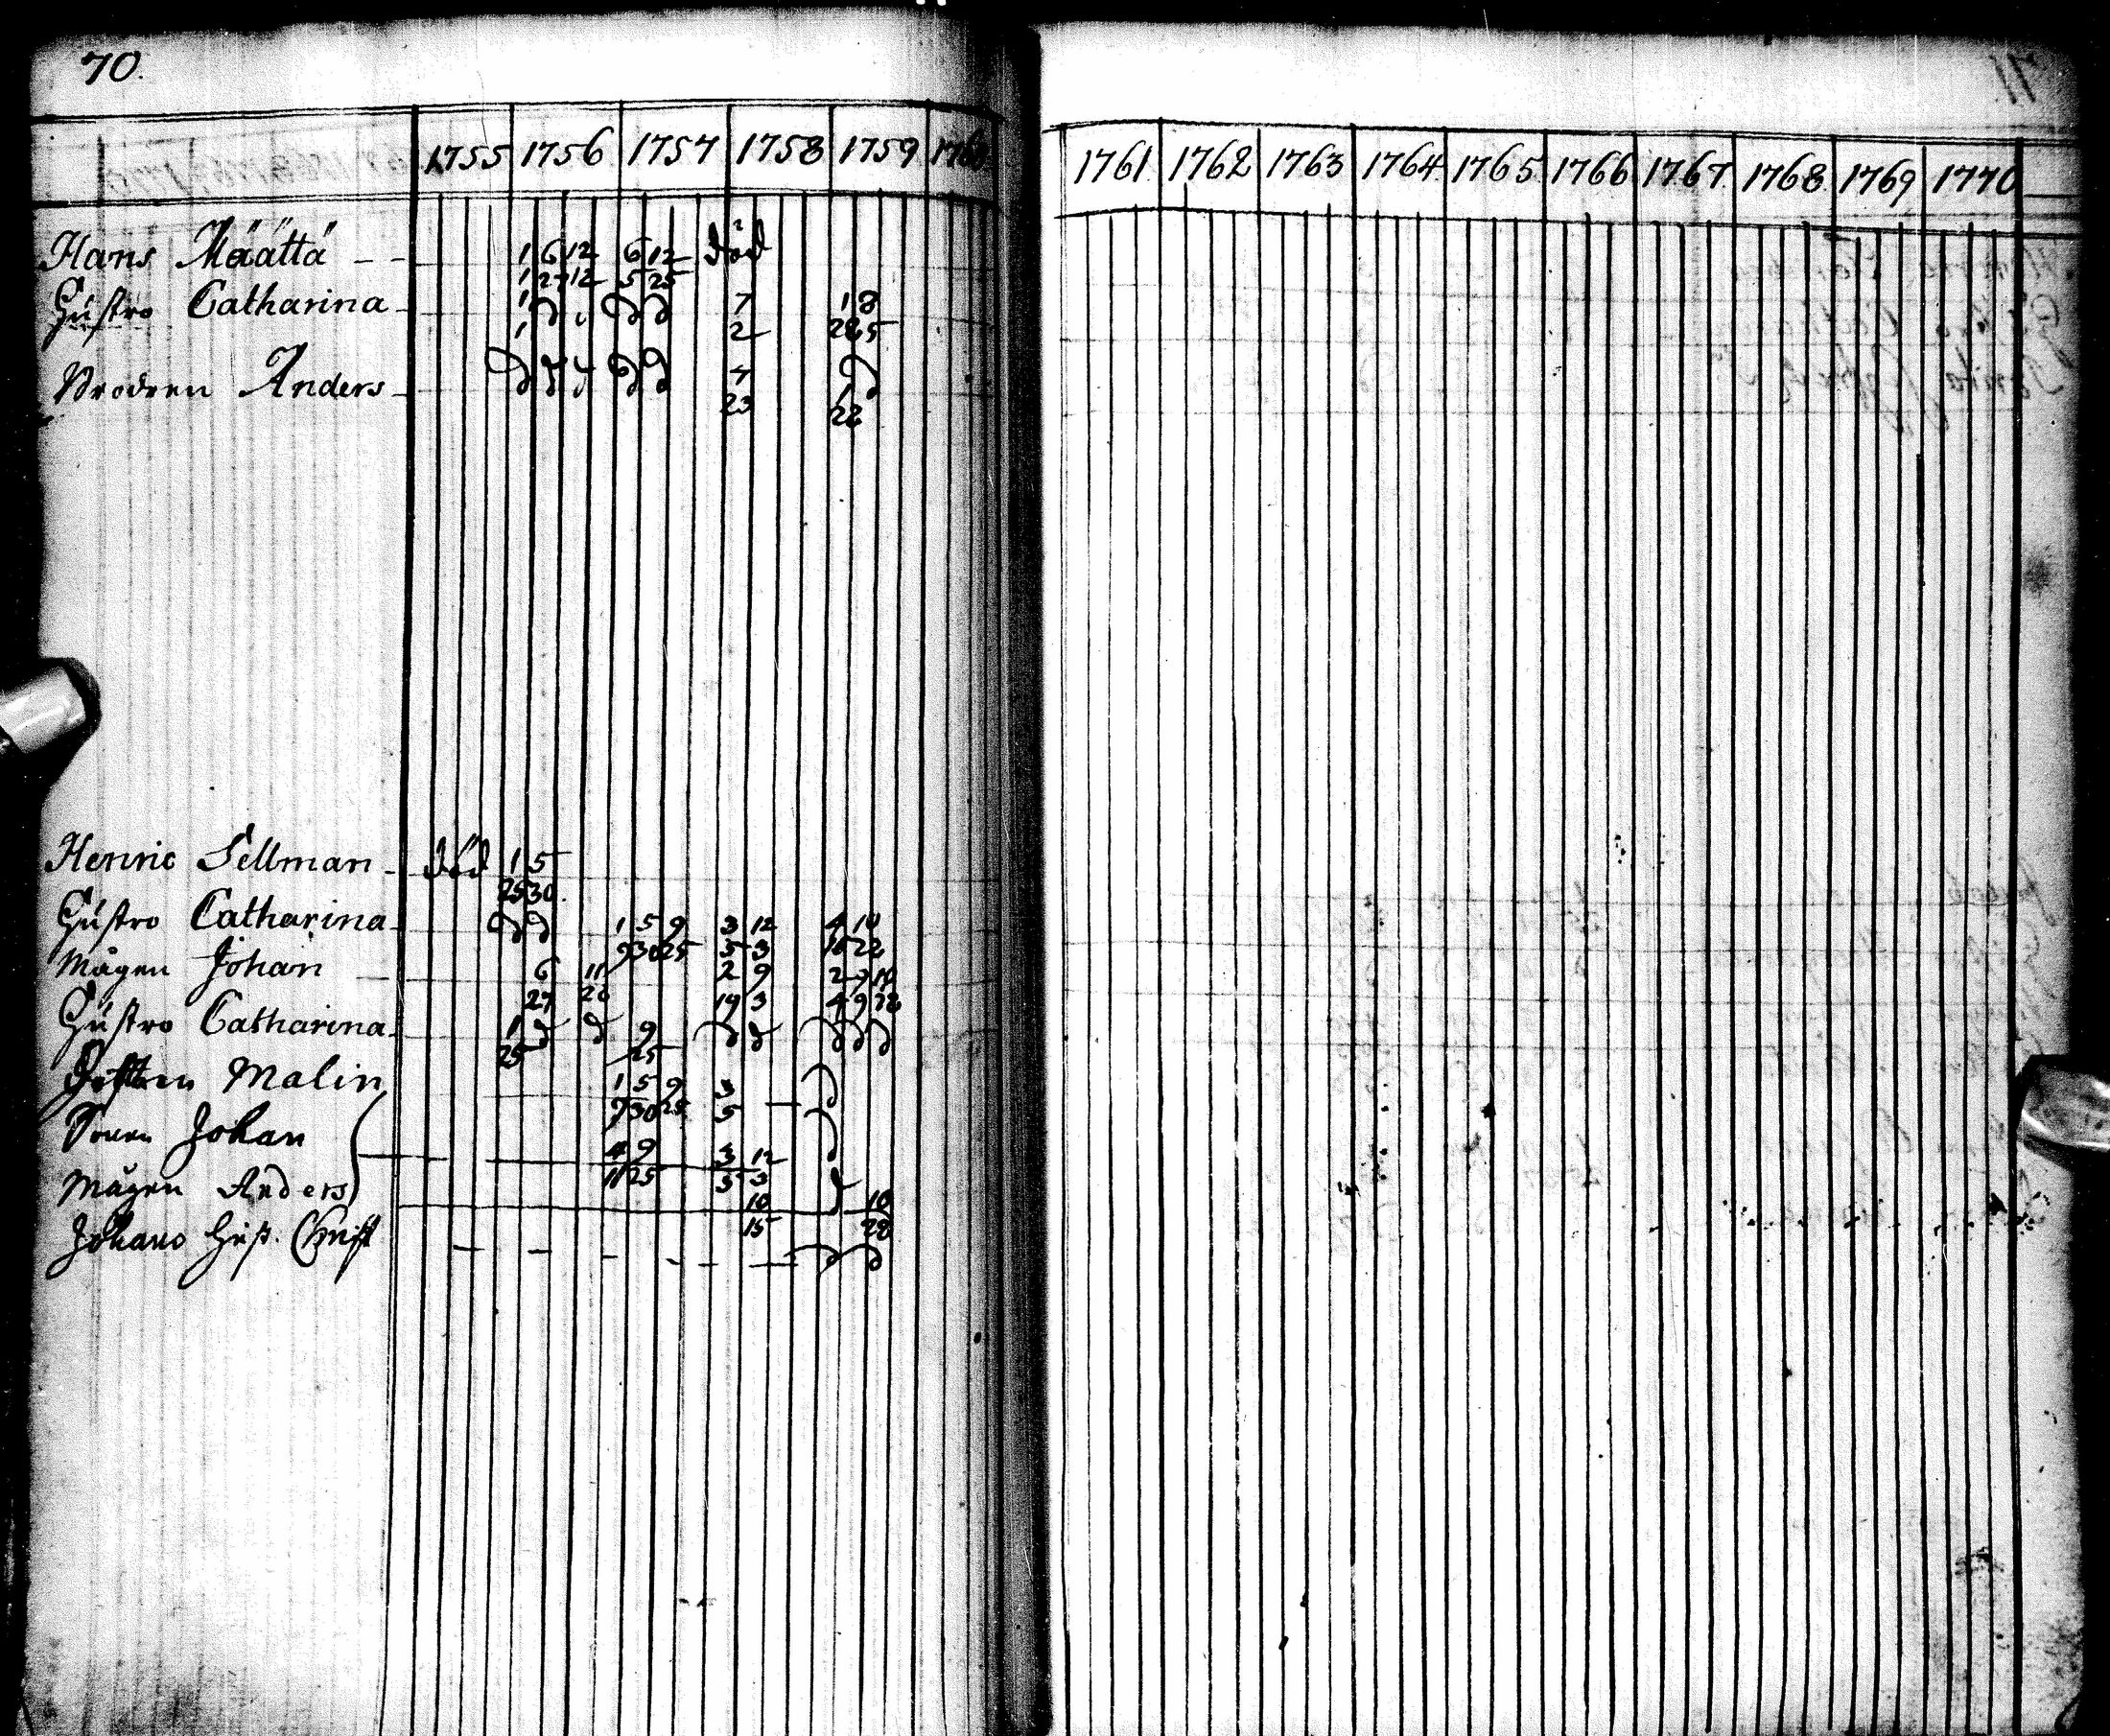 70.
1755 1756 1757 1758 1759 1760 1761 1762 1763 1764 1765 1766 1767 1768 1769 1770
Hans Määttä - - 1 6 12 6 12 död
1 27 12 5 25
Hustro Catharina 1 7 1 8
1 2 28 5
Brodren Anders 4
23 22
Henric Sellman död 1 5
25 30
Hustro Catharina 1 5 9 3 12 4 10
9 30 25 5 3 16 22
Mågen Johan 6 11 2 9 2 9 10
27 28 19 3 4 9 28
Hustro Catharina 1 9
25 25
Malin 1 5 9 3
9 30 25 5
Sonen Johan
4 9 3 12
Mågen Anders 11 25 5 3
10 10
Johans Hust. Christ 15 28